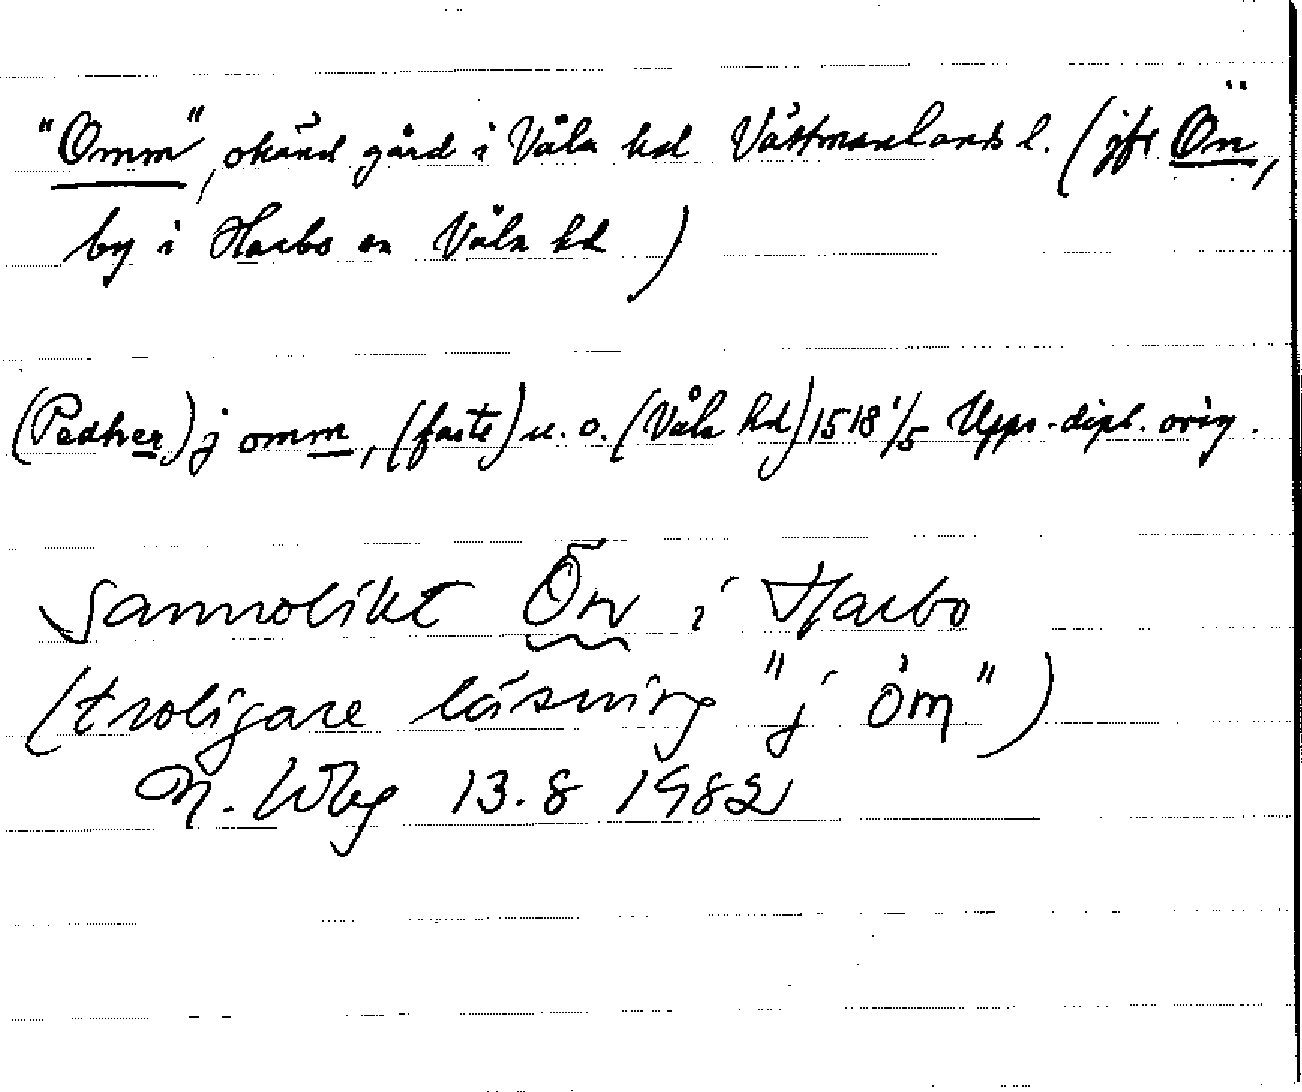 "Omm", okänd gård i Våla hd Västmanlands l. (jfr Ön,
by i Harbo sn Våla hd)
(Pedher) j omm, (faste) u. o. (Våla hd) 1518 1/5 Upps. dipl. orig.
Sannolikt Ön i Harbo
(troligare läsning "j öm")
M. Wbg 13.8 1982